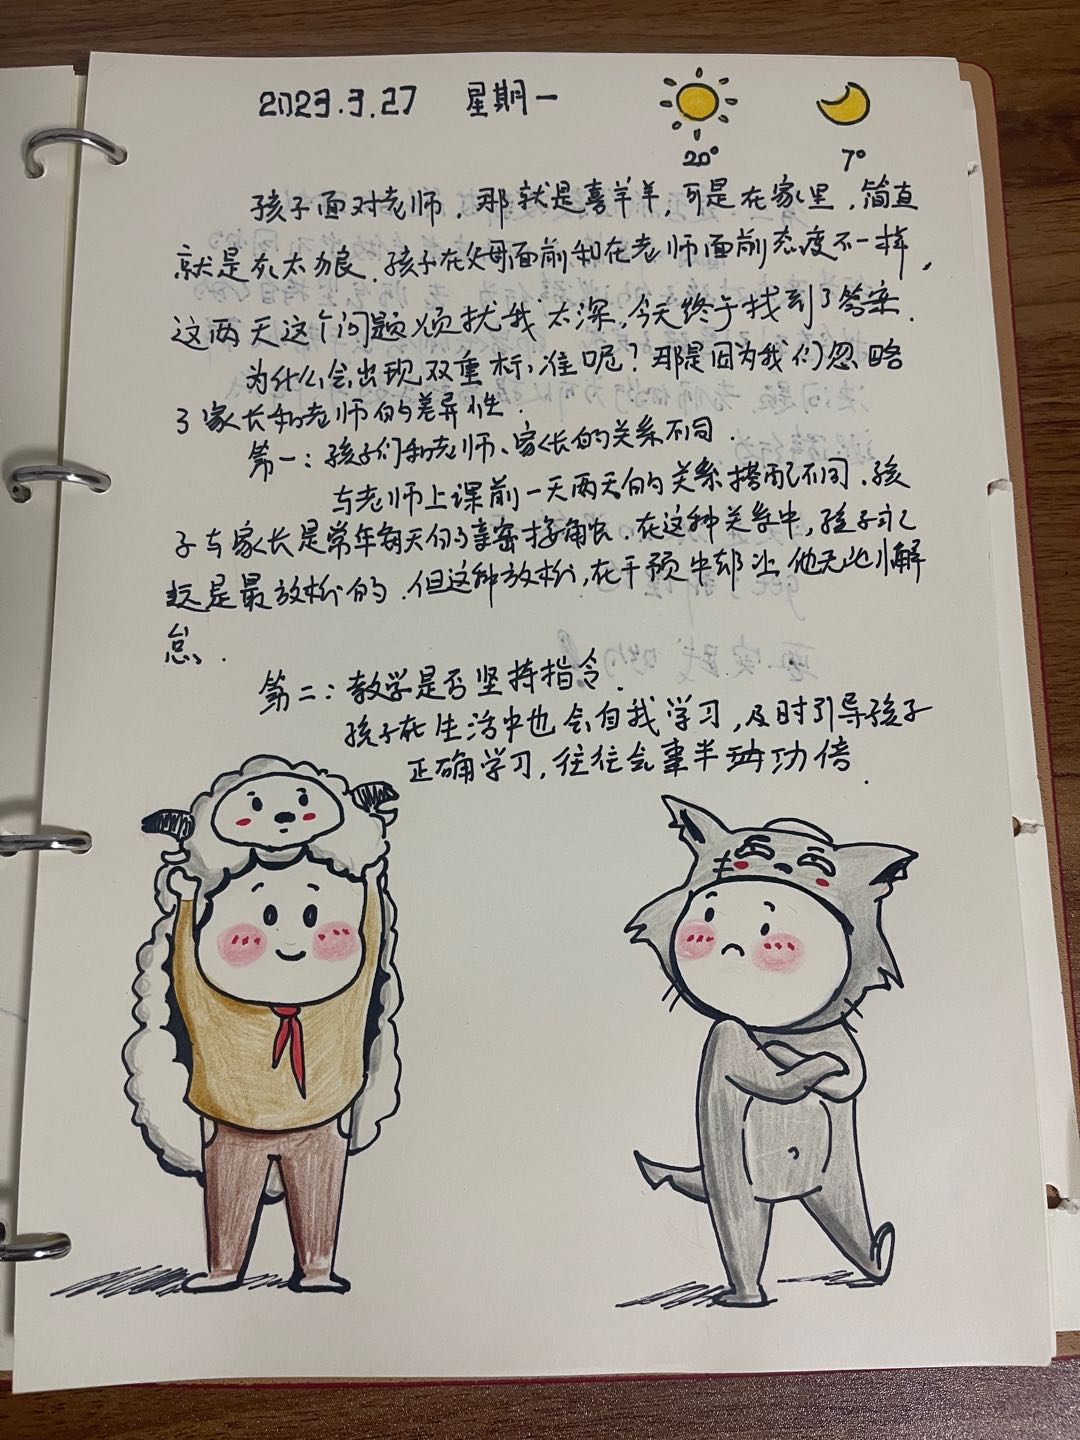 2023.3.27 星期一
20° 7°
孩子面对老师，那就是喜羊羊，可是在家里，简直
就是灰太狼．孩子在父母面前和在老师面前态度不一样，
这两天这个问题烦扰我太深，今天终于找到了答案．
为什么会出现双重标准呢？那是因为我们忽略
了家长和老师的差异性．
第一：孩子们和老师、家长的关系不同．
与老师上课前一天两天的关系搭配不同，孩
子与家长是常年每天的亲密接触，在这种关系中，孩子永
远是最放松的．但这种放松，在干预中却让他无比懈
怠．
第二：教学是否坚持指令．
孩子在生活中也会自我学习，及时引导孩子
正确学习，往往会事半功倍．